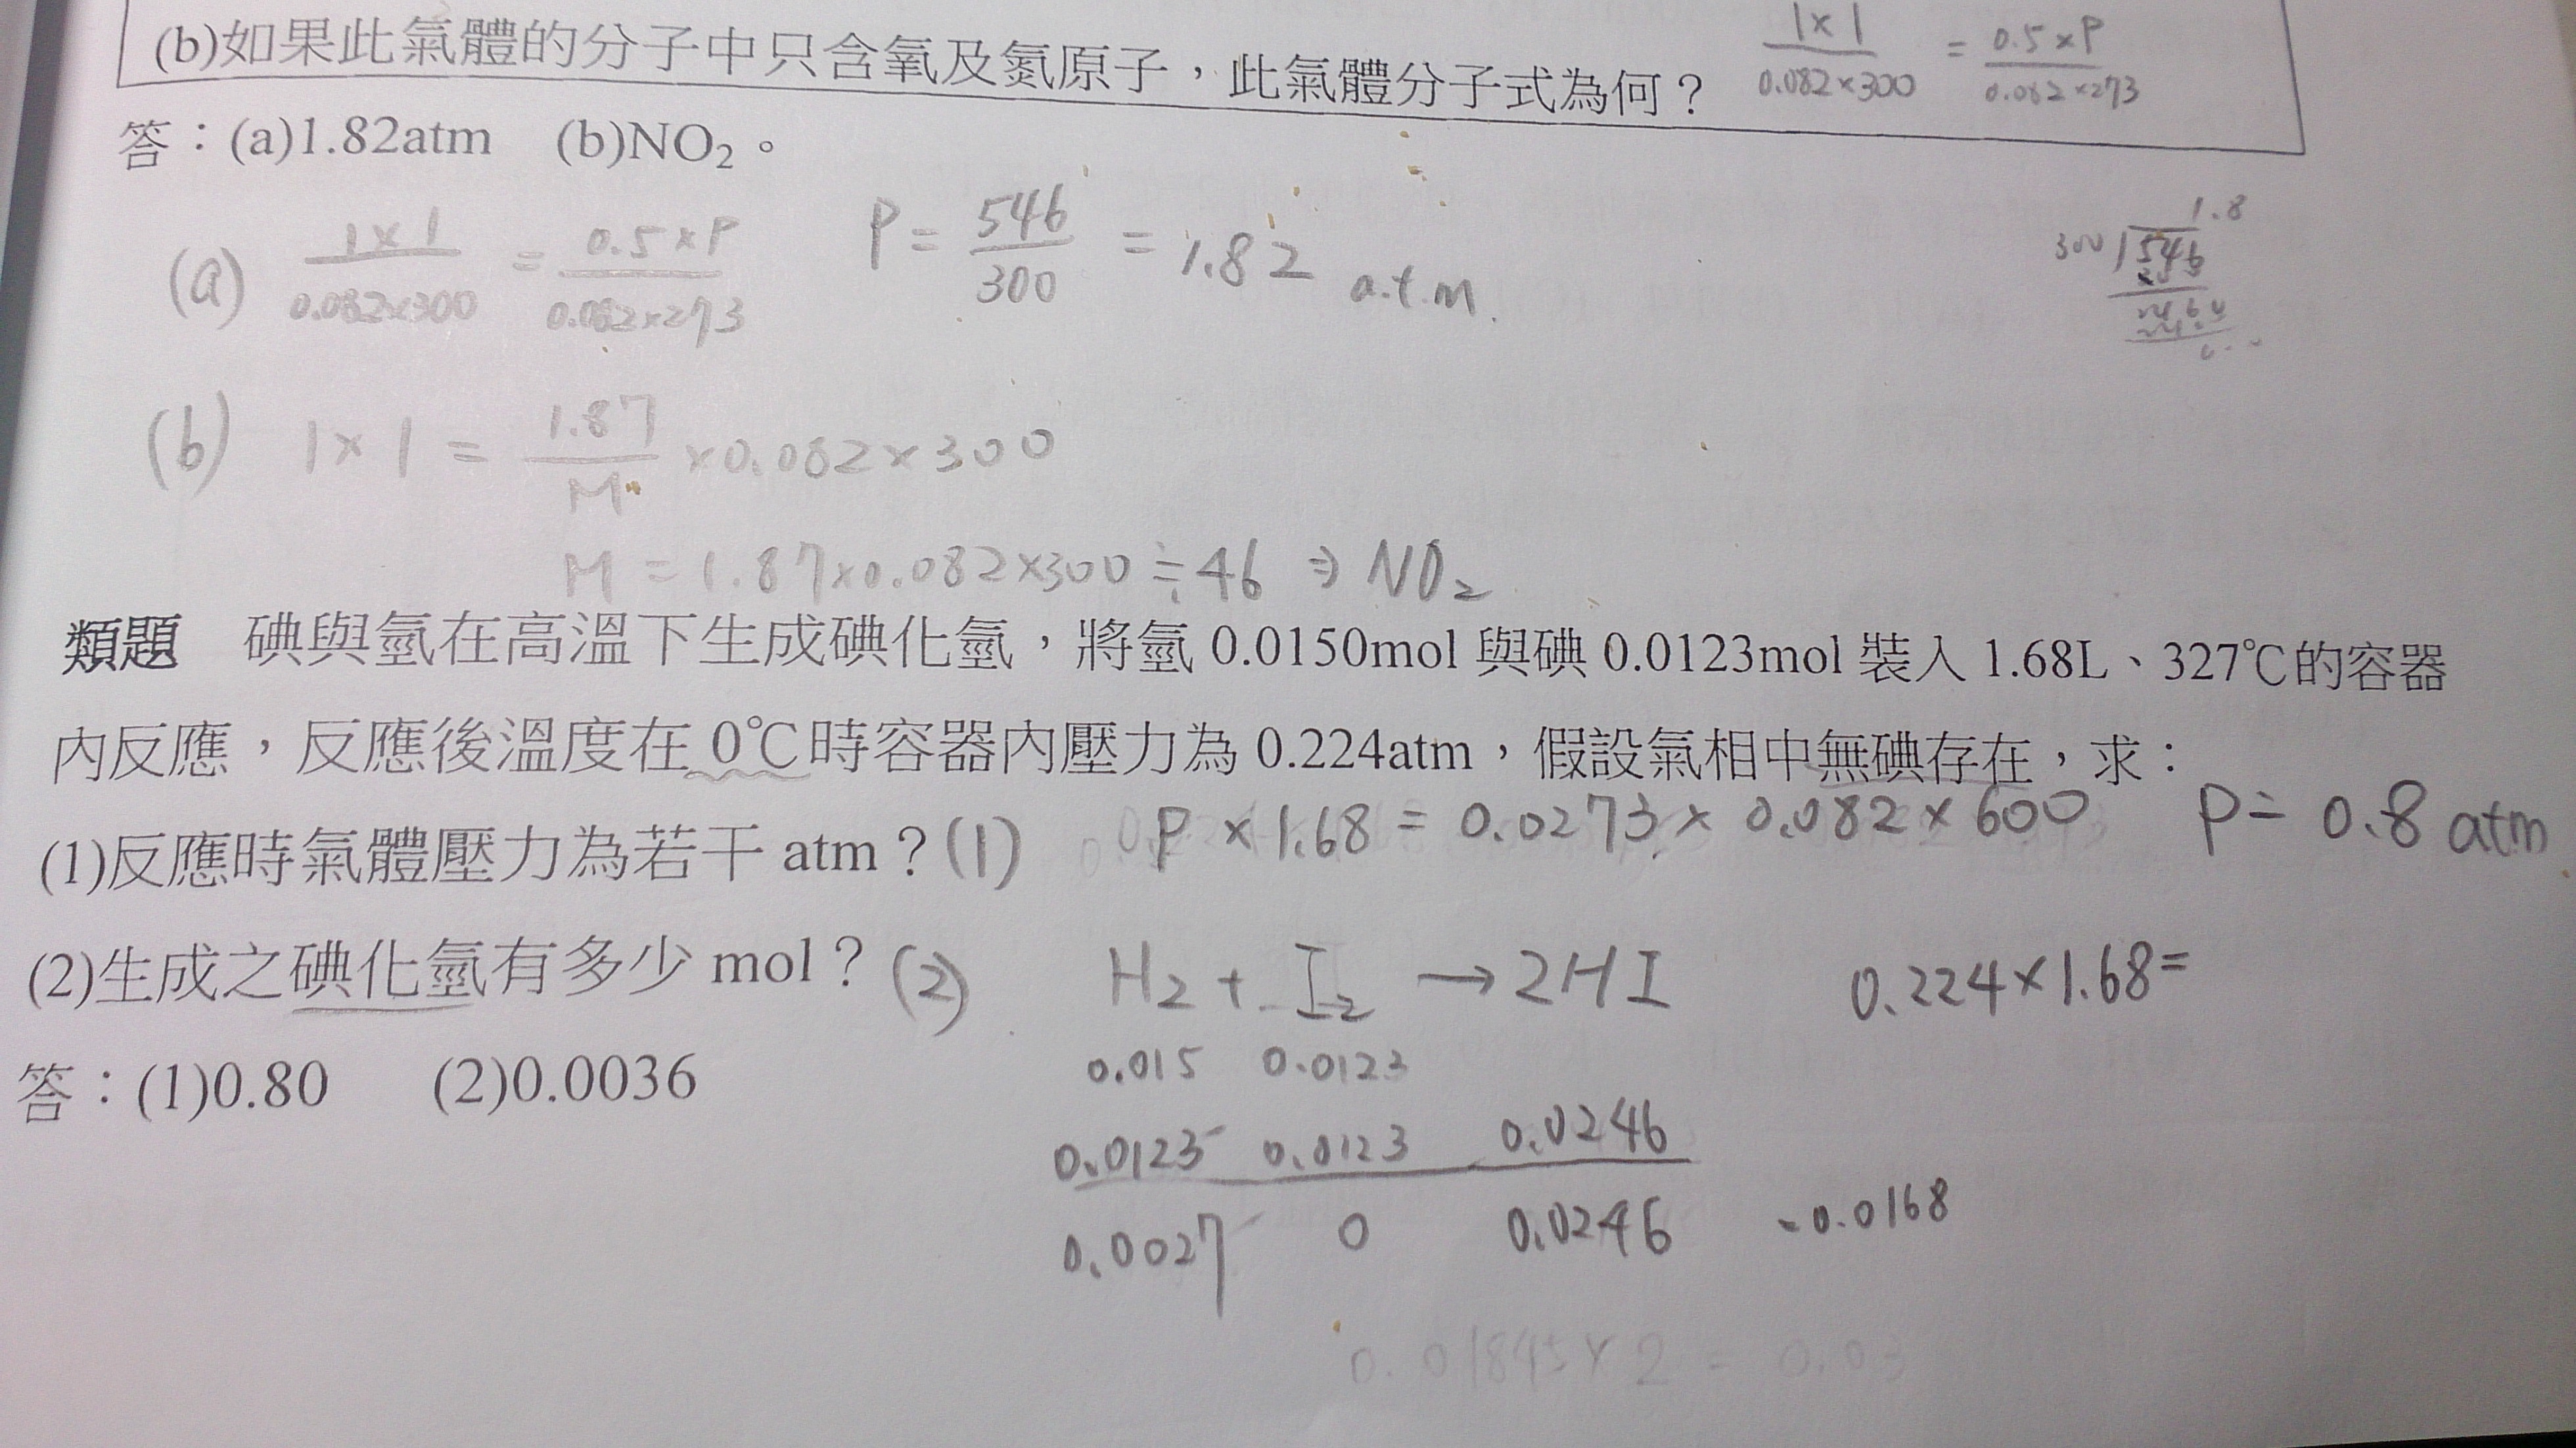 (b)如果此氣體的分子中只含氧及氮原子，此氣體分子式為何？
1×1/0.082×300 = 0.5×P/0.082×273
答：(a)1.82atm (b)NO₂。
(a) 1×1/0.082×300 = 0.5×P/0.082×273 P = 546/300 = 1.82 a.t.m.
1.8
300 546
(b) 1×1 = 1.87/M ×0.082×300
M = 1.87×0.082×300 ≒ 46 ⇒ NO₂
類題 碘與氫在高溫下生成碘化氫，將氫 0.0150mol 與碘 0.0123mol 裝入 1.68L、327℃的容器
內反應，反應後溫度在 0℃時容器內壓力為 0.224atm，假設氣相中無碘存在，求：
(1)反應時氣體壓力為若干 atm？(1) P×1.68 = 0.0273×0.082×600 P≒0.8 atm
(2)生成之碘化氫有多少 mol？(2) H₂ + I₂ → 2HI 0.224×1.68=
答：(1)0.80 (2)0.0036
0.015 0.0123
0.0123 0.0123 0.0246
0.0027 0 0.0246 0.0168
0.01845×2 = 0.03